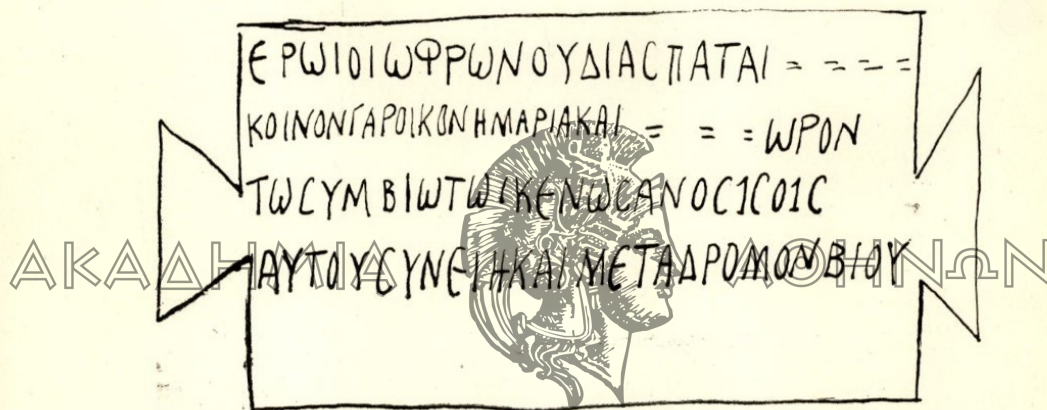 ΕΡΩΙΟΙΩΦΡΩΝΟΥΔΙΑСΠΑΤΑΙ = = = = =
ΚΟΙΝΟΝΓΑΡΟΙΚΟΝΗΜΑΡΙΑΚΑΙ = = = ΩΡΟΝ
ΤΩСΥΜΒΙΩΤΩΙΚΕΝΩСΑΝΟС1С01С
ΑΥΤΟΥСΥΝΕΙΗΚΑΙΜΕΤΑΔΡΟΜΟΝΒΙΟΥ
ΑΚΑΔΗΜΙΑ ΑΘΗΝΩΝ